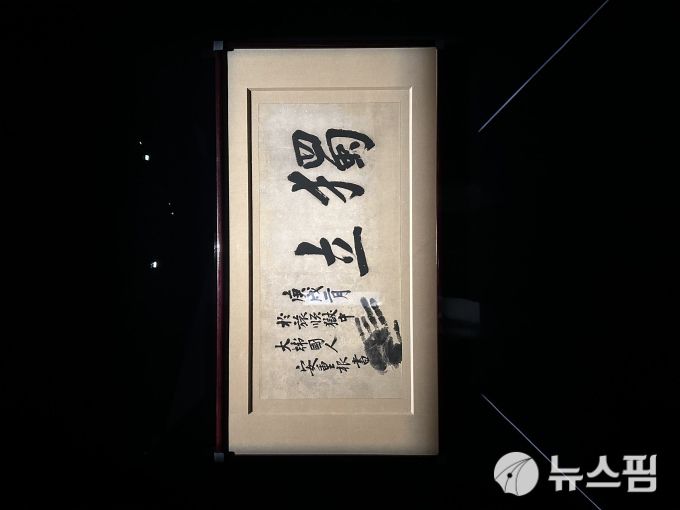 獨立
庚戌二月
於旅順獄中
大韓國人
安重根書
뉴스핌